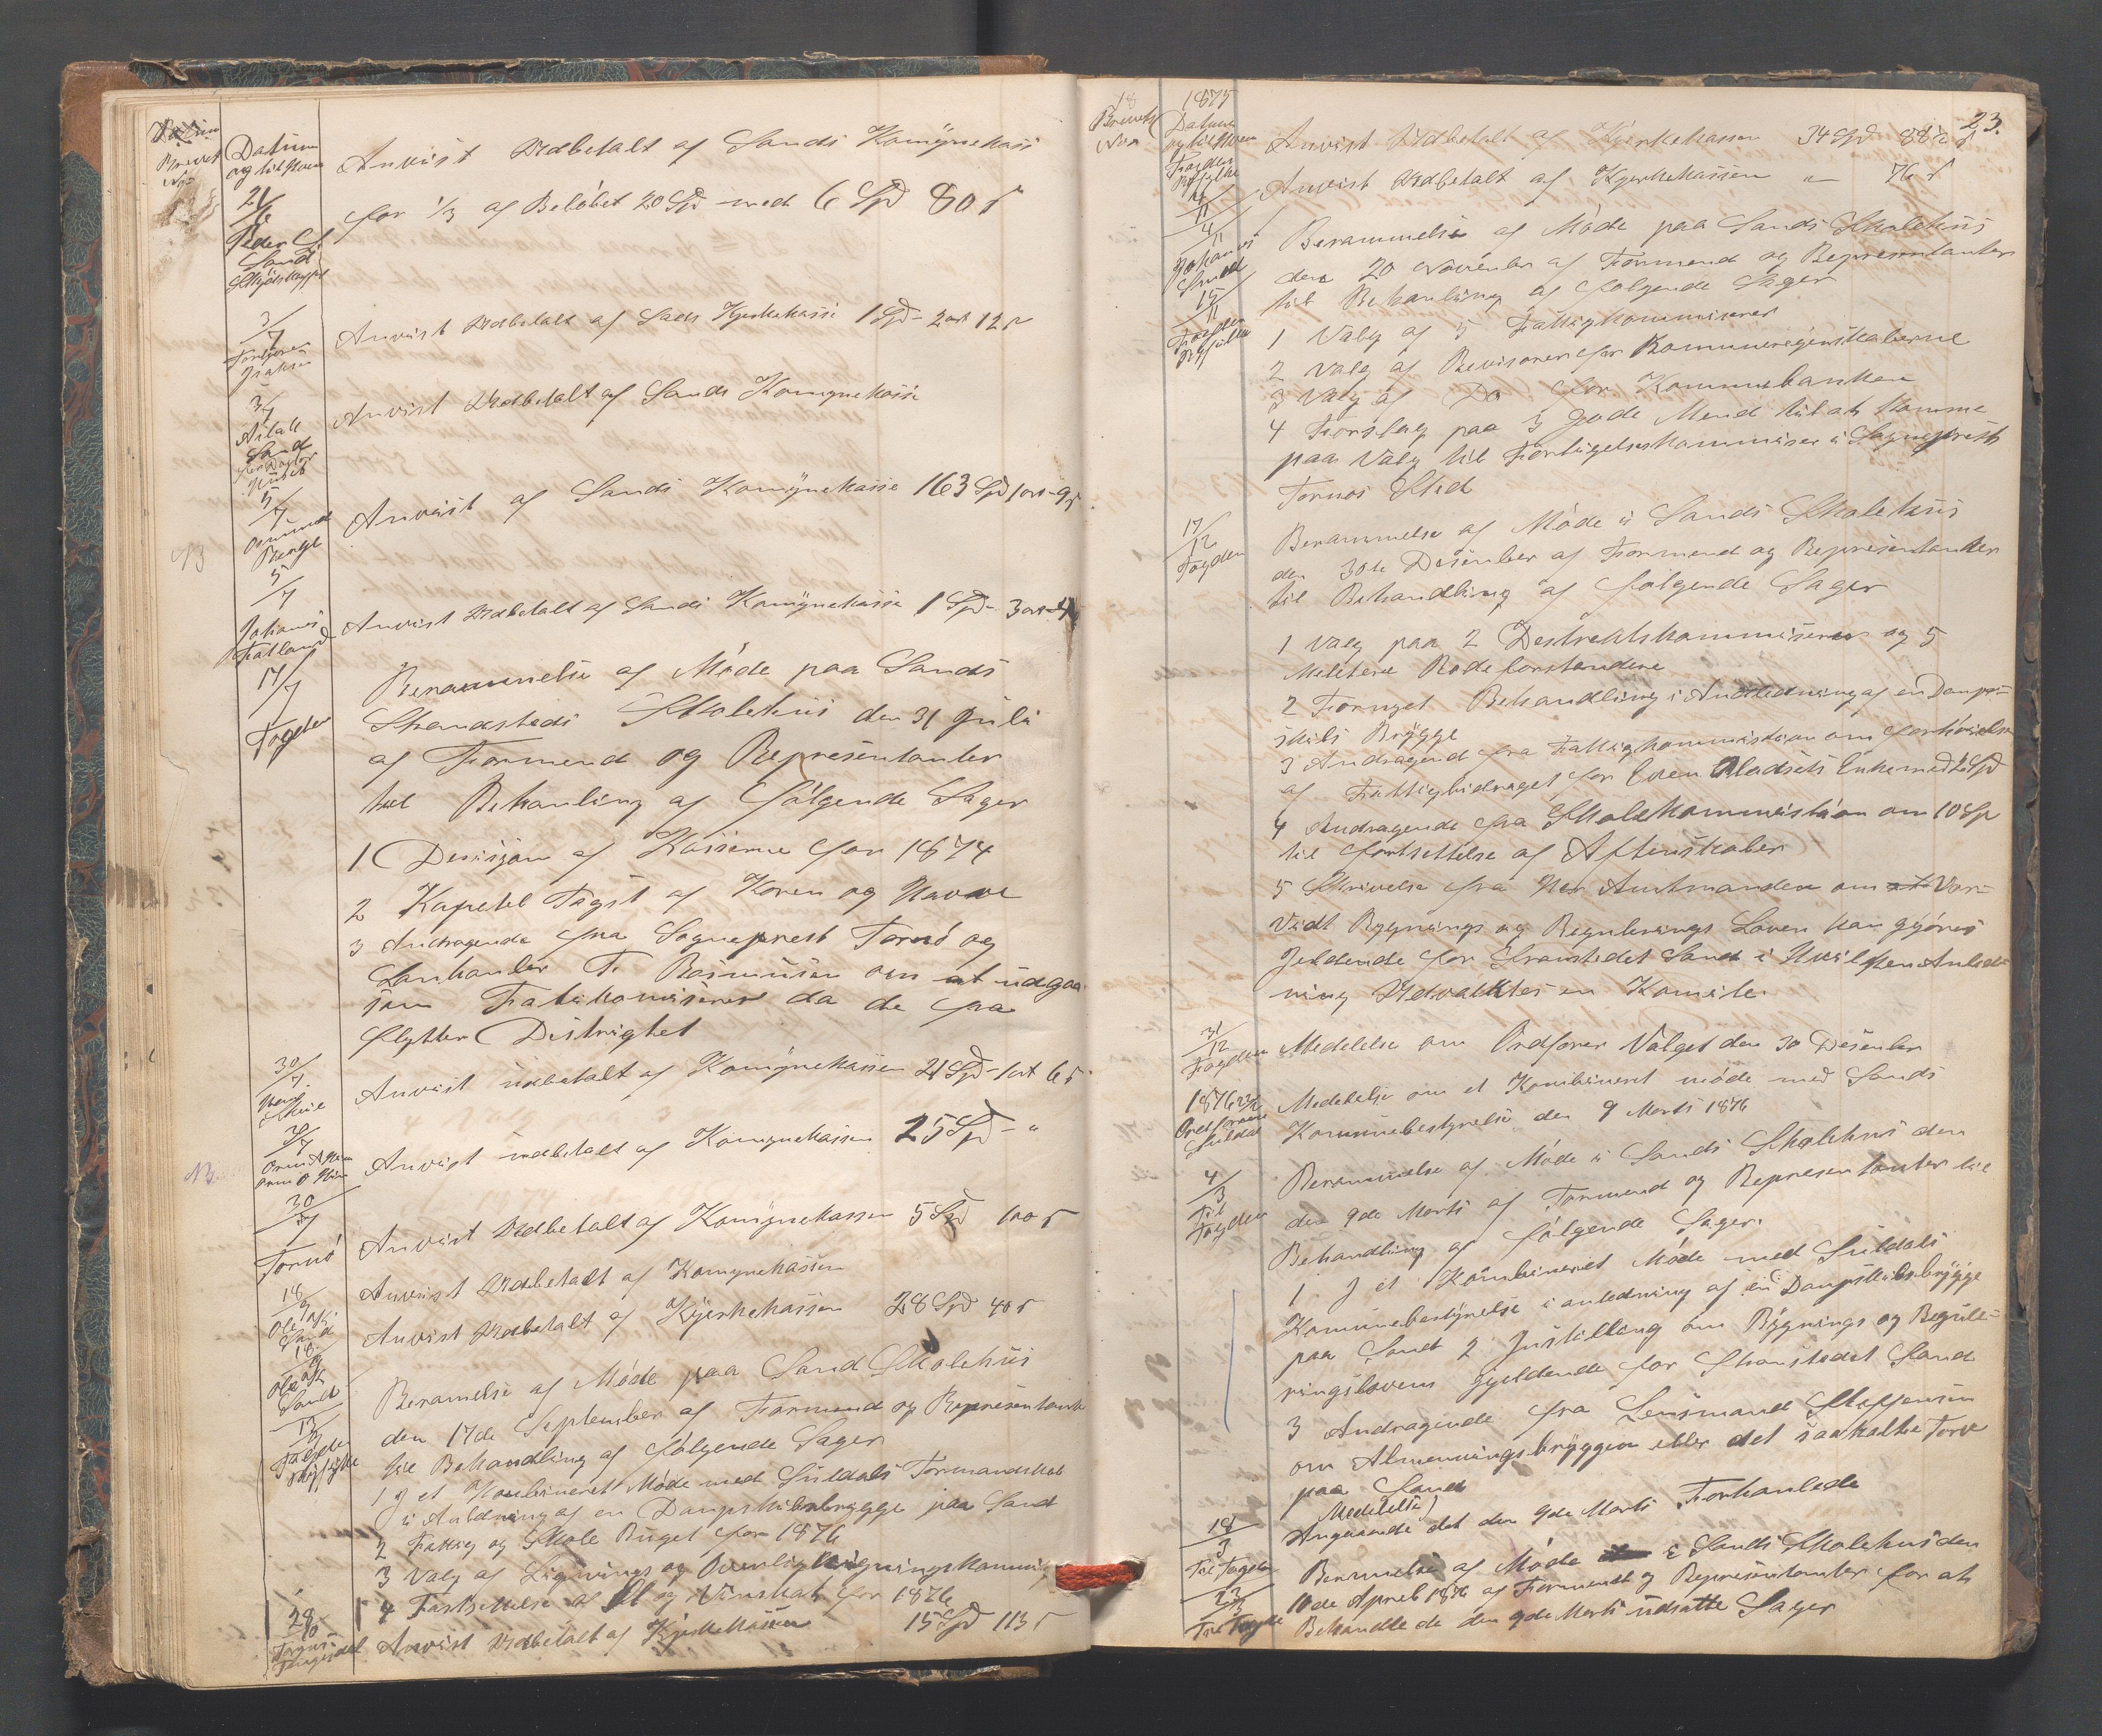 Brevets
No
Datum
og til Hvem
Anvist Udbetalt af Sands Komynekasse
21/6
Peder C
Sand
for 1/3 af Beløbet 20 Spd med 6 Spd 80 s
3/7
Anvist Udbetalt af Sads Kjerkekasse 1 Spd - 2 ort 12 s
3/7
Sand
Anvist Udbetalt af Sands Komynekasse
5/7
Osmund
Berge
Anvist af Sands Komynekasse 163 Spd 1 ort - 9 s
NB
5/7
Johanes
Fatland
Anvist Udbetalt af Sands Komynekasse 1 Spd - 3 ort
17/7
Fogden
Berammelse af Møde paa Sands
Strandsteds Skolehus den 31 Juli
af Formend og Representanter
til Behanling af følgende Sager
1 Desisjon af Kasserne for 1874
2 Kapetel Tagst af Koren og Havre
3 Andragende fra Sogneprest Tornø og
Lanhanler T. Rasmusen om at udgaa
som Fatikomiserer da de fra
flytter Distrigtet
30/7
Anvist udbetalt af Komynekassen 21 Spd - 1 ort 6 s
30/7
NB
Anvist udbetalt af Komynekassen 25 Spd - "
30/7
Tornø
Anvist Udbetalt af Komynekassen 5 Spd 100 s
18/9
Sand
Anvist Udbetalt af Komynekassen
18/9
Sand
Anvist Udbetalt af Kjerkekassen 28 Spd 40 s
13/9
Fogden
Ryfylke
Beramelse af Møde paa Sand Skolehus
den 17de September af Formend og Representante
til Behandling af følgende Sager
1 J et Kombineret Møde med Suldals Formandskab
i Anledning af en Dampskibsbrygge paa Sand
2 Fattig og Skole Buget for 1876
3 Valg af Lignings og Overligningskommis
4 Fastsettelse af Øl og Vinskat for 1876
28/10
Anvist Udbetalt af Kjerkekassen 15 Spd 113 s
23.
18
Brevets
No
1875
Datum
og til Hvem
Fogden
Ryfylke
Anvist Udbetalt af Kjerkekassen 34 Spd 88 1/2 s
Anvist Udbetalt af Kjerkekassen " - 76 s
4/11
Johanes
Smed
15/11
Fogden
Ryfylke
Berammelse af Møde paa Sands Skolehus
den 20 November af Formend og Representanter
til Behanling af følgende Sager
1 Valg af 5 Fattigkommiserer
2 Valg af Revisorer for Kommuneregenskaberne
3 Valg af Do for Kommunebanken
4 Forslag paa 3 gode Mend til at komme
paa Valg til Forligelseskommiser i Sogneprest
Tornøs Sted
17/12
Fogden
Berammelse af Møde i Sands Skolehus
den 30te Desember af Formend og Representanter
til Behandling af følgende Sager
1 Valg paa 2 Destrektskommiserer og 5
Militere Rodeforstandere
2 Fornyet Behandling i Andledning af en Damp-
skibs Brygge
3 Andragend fra Fattigkommistion om forhøielse
af Fattigbidraget for Even Vladsets Enke med 2 Spd
4 Andragende fra Skolekommistion om 10 Sp
til fortsettelse af Aftenskoler
5 Skrivelse fra Her Amtmanden om at Vor-
vidt Bygnings og Regulerings Loven kan gjøres
Jeldende for Stranstedet Sand i Hvilken Anled
ning Udvalktes en Komite.
31/12
Fogden
Medelelse om Ordfører Valget den 30 Desember
1876 22/2
Ordføreren
Suldal
Medelelse om et Kombineret møde med Sands
Kommunebestyrelse den 9 Marts 1876
4/3
Til
Fogden
Berammelse af Møde i Sands Skolehus den
den 9de Marts af Formend og Representanter til
Behandling af følgende Sager.
1. J et Kombineret Møde med Suldals
Kommunebestyrelse i anledning af en Dampskibsbrygge
paa Sand 2 Instilling om Bygnings og Regule-
ringsloven gjeldende for Stranstedet Sand
3 Andragende fra Lensmand Steffensen
om Almenningsbryggen eller det saakalte Torv
paa Sand
18/3
Til Fogden
Medelelse
Angaaende det den 9de Marts Forhanlede
23/3
Til Fogden
Berammelse af Møde i Sands Skolehus den
10de Apreel 1876 af Formend og Representanter for at
Behandle de den 9de Marts udsatte Sager